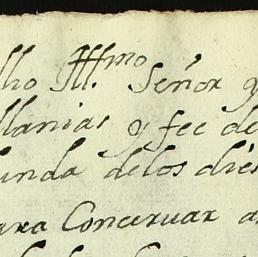 lho Illmo Señor y
llanias y fee de
unda delos dies
ara Concervar a